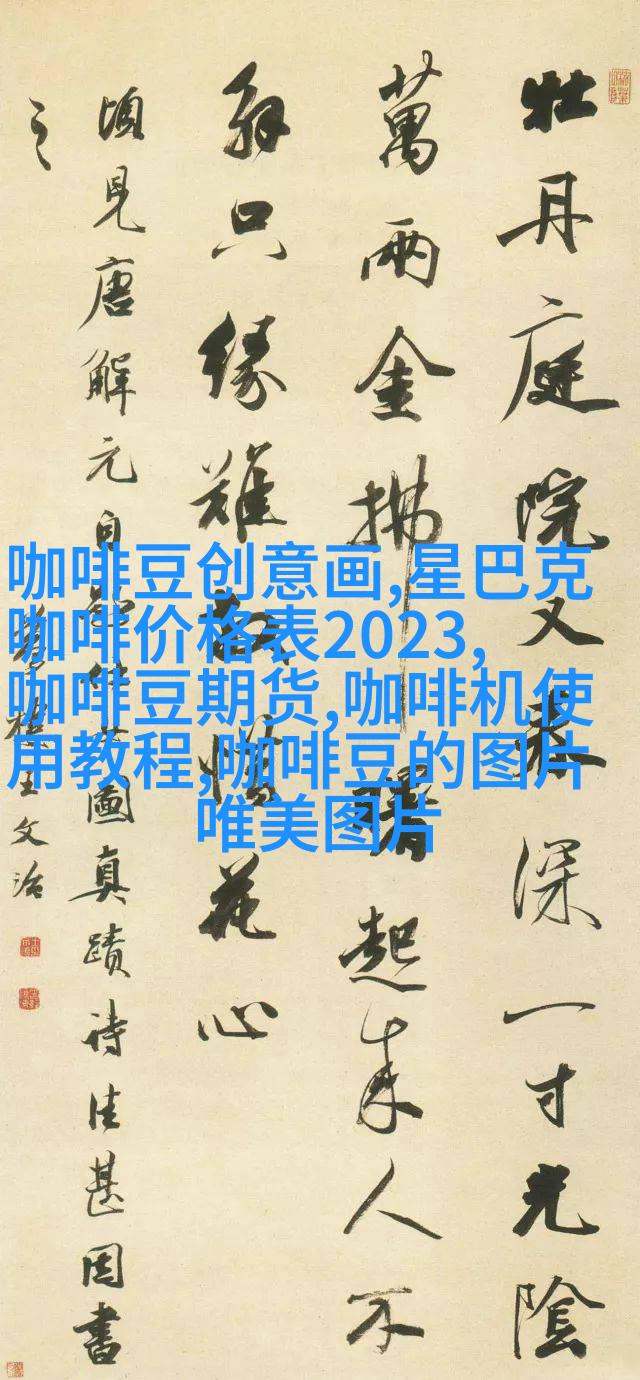 牡丹庭院又春深一寸光陰
萬兩金拂曙起來人不
解只緣難放惜花心
頃見唐解元自仕圖真蹟詩佳甚因書
之
夢樓王文治
咖啡豆创意画,星巴克
咖啡价格表2023,
咖啡豆期货,咖啡机使
用教程,咖啡豆的图片
唯美图片